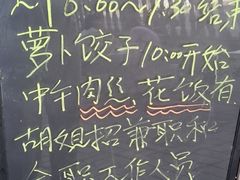 ~10:00~7:30结束
萝卜饺子10:00开始
中午肉丝花饭有
胡姐招兼职和
全职工作人员